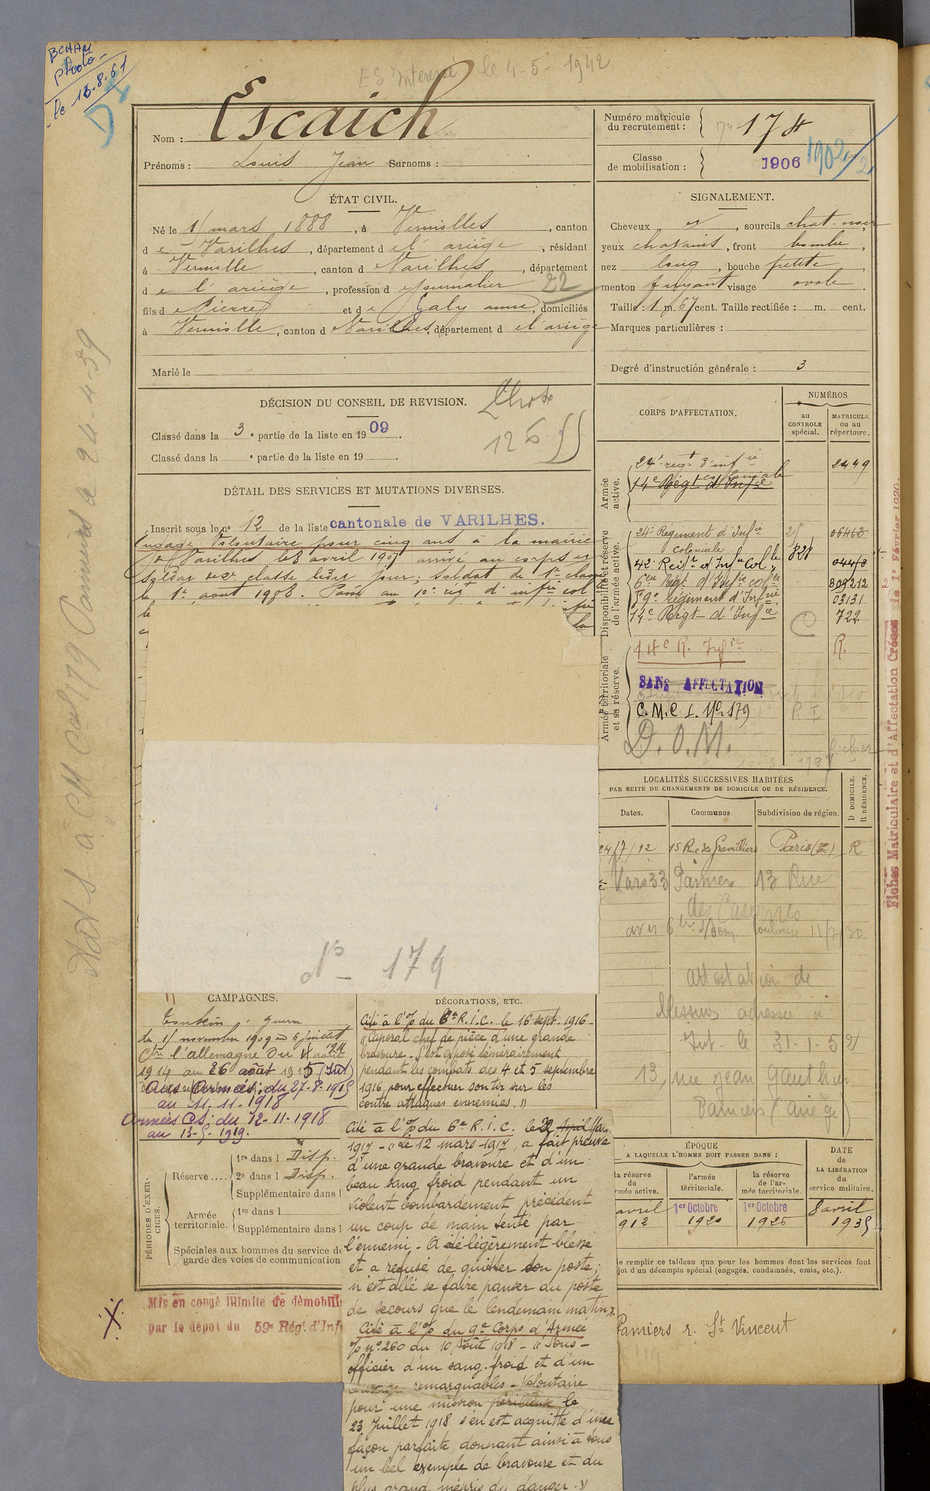 BCHAM
Photo
le 13.8.51
le 4-5-1942
Nom : Escaich
Prénoms : Louis Jean Surnoms :
Numéro matricule
du recrutement : 174
Classe
de mobilisation : 1906
ÉTAT CIVIL.
Né le 1 mars 1888, à Verniolles, canton
de Varilhes, département de l'ariège, résidant
à Verniolle, canton de Varilhes, département
de l'ariège, profession de Journalier
22
fils de Pierre et de Galy anne, domiciliés
à Verniolle, canton de Varilhes, département de l'ariège
Marié le
SIGNALEMENT.
Cheveux et, sourcils chat. noir
yeux chatains, front bombé,
nez long, bouche petite
menton fuyant visage ovale
Taille : 1 m. 67 cent. Taille rectifiée : m. cent.
Marques particulières :
Degré d'instruction générale : 3
DÉCISION DU CONSEIL DE REVISION.
Classé dans la 3e partie de la liste en 1909.
Classé dans la e partie de la liste en 19
Photo
DÉTAIL DES SERVICES ET MUTATIONS DIVERSES.
Inscrit sous le n° 12 de la liste cantonale de VARILHES.
Engagé Volontaire pour cinq ans à la mairie
de Varilhes le 8 avril 1907 arrivé au corps et
soldat de 2e classe ledit jour; soldat de 1re classe
le 1er aout 1908. Passé au 10e régt d'infie col
CORPS D'AFFECTATION.
NUMÉROS
au
CONTROLE
spécial.
MATRICULE
ou au
répertoire.
Armée
active.
24e regt d'infie
coloniale 2449
14e Régt d'Infie
Disponibilité et réserve
de l'armée active.
24e Régiment d'Infie
Coloniale
42e Regt d'Infie Colle
6em Regt d'Infie colle
59e régiment d'Infie 03131
14e Regt d'Infie 722
Armée territoriale
et sa réserve.
14e R. Infie R.
SANS AFFECTATION
C.M.C. I. No. 179
D.O.M.
Fiches Matriculaire et d'Affectation Créées le 1er Février 1920.
LOCALITÉS SUCCESSIVES HABITÉES
PAR SUITE DE CHANGEMENTS DE DOMICILE OU DE RÉSIDENCE.
Dates. Communes Subdivision de région. D DOMICILE. R RÉSIDENCE.
24/7/12 15 Rue des Gravilliers Paris R
Mars 33 Pamiers 13 Rue
des Casernes
Attestation de
blessures adressée à
Int. le 31-1-52
13, rue jean Gauthier
Pamiers (Ariège)
N° 179
CAMPAGNES.
Tonkin : guerre
du 15 novembre 1909 au 6 juillet
Ctre l'allemagne du 4 août
1914 au 26 août 1915 (Int)
Aux Armées : du 27-8-1915
au 11-11-1918
Armées CS : du 12-11-1918
au 13-5-1919.
DÉCORATIONS, ETC.
Cité à l'O/ du 6e R.I.C. le 16 sept. 1916 -
"Caporal chef de pièce d'une grande
bravoure - S'est exposé témérairement
pendant les combats des 4 et 5 septembre
1916 pour effectuer son tir sur les
contre attaques ennemies."
Cité à l'O/ du 6e R.I.C. le
1917 - "Le 12 mars 1917, a fait preuve
d'une grande bravoure et d'un
beau sang froid pendant un
violent bombardement précédent
un coup de main tenté par
l'ennemi. A été légèrement blessé
et a refusé de quitter son poste ;
n'est allé se faire panser au poste
de secours que le lendemain matin."
Cité à l'O/ du 9e Corps d'Armée
O/ n° 260 du 10 Août 1918 - "Sous-
officier d'un sang-froid et d'un
courage remarquables - Volontaire
pour une mission périlleuse le
23 Juillet 1918 s'en est acquitté d'une
façon parfaite, donnant ainsi à tous
un bel exemple de bravoure et du
plus grand mépris du danger."
PÉRIODES D'EXERCICES.
Réserve ....
1re dans l Disp.
2e dans l Disp.
Supplémentaire dans l
Armée
territoriale.
1re dans l
Supplémentaire dans l
Spéciales aux hommes du service de
garde des voies de communication
ÉPOQUE
A LAQUELLE L'HOMME DOIT PASSER DANS :
la réserve
l'armée
territoriale.
la réserve
de l'ar-
mée territoriale.
DATE
de
LA LIBÉRATION
du
service militaire.
avril
1912
1er Octobre
1920
1er Octobre
1926
8 avril
1935
Mis en congé illimité de démobili
par le dépôt du 59e Rég. d'Inf
Pamiers r. St Vincent